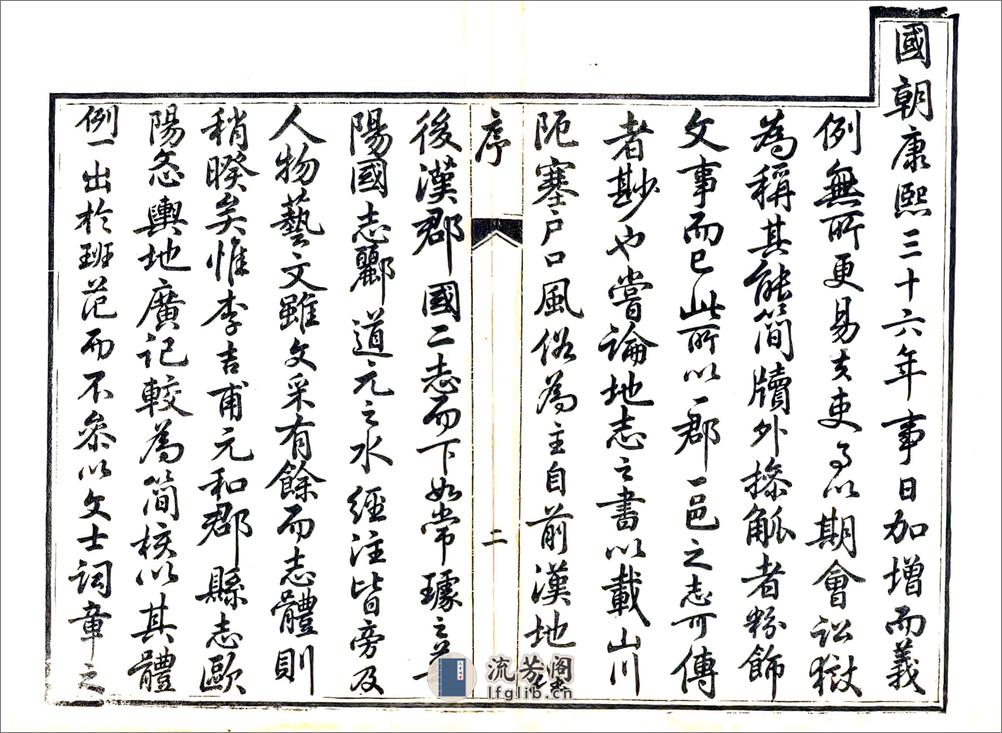 國朝康熙三十六年事日加增而義
例無所更易夫吏多以期會訟獄
為稱其能簡牘外操觚者粉飾
文事而已此所以一郡一邑之志可傳
者尠也嘗論地志之書以載山川
阨塞戶口風俗為主自前漢地
序
二
後漢郡國二志而下如常璩之華
陽國志酈道元之水經注皆旁及
人物藝文雖文采有餘而志體則
稍暌矣惟李吉甫元和郡縣志歐
陽忞輿地廣記較為簡核以其體
例一出於班范而不參以文士詞章之
流芳阁
lfglib.cn